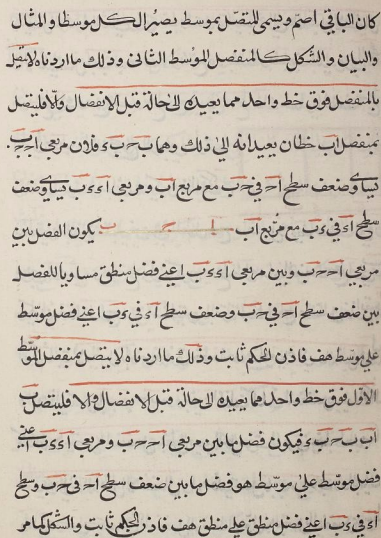 كان الباقي اصم ويسمى المتصل بموسط يصير الكل موسطا والمثال
والبيان والشكل كالمنفصل الموسط الثاني وذلك ما اردناه لا يتصل
بالمنفصل فوق خط واحد مما يعيده الى حالة قبل الانفصال والا فليتصل
بمنفصل اب خطان يعيدانه الى ذلك وهما ب ح ب ء فلان مربعي ا ح ح ب
يساوى ضعف سطح ا ح في ح ب مع مربع اب ومربعي ا ء ء ب يساوى ضعف
سطح ا ء في ء ب مع مربع اب يكون الفضل بين
مربعي ا ح ح ب وبين مربعي ا ء ء ب اعني فضل منطق مساويا للفضل
بين ضعف سطح ا ح في ح ب وضعف سطح ا ء في ء ب اعني فضل موسط
على موسط هف فاذن الحكم ثابت وذلك ما اردناه لا يتصل بمنفصل الموسط
الاول فوق خط واحد مما يعيده الى حالة قبل الانفصال والا فليتصل ب
اب ب ح ب ء فيكون فضل ما بين مربعي ا ح ح ب ومربعي ا ء ء ب اعني
فضل موسط على موسط هو فضل ما بين ضعف سطح ا ح في ح ب وسطح
ا ء في ء ب اعني فضل منطق على منطق هف فاذن الحكم ثابت والشكل كما مر